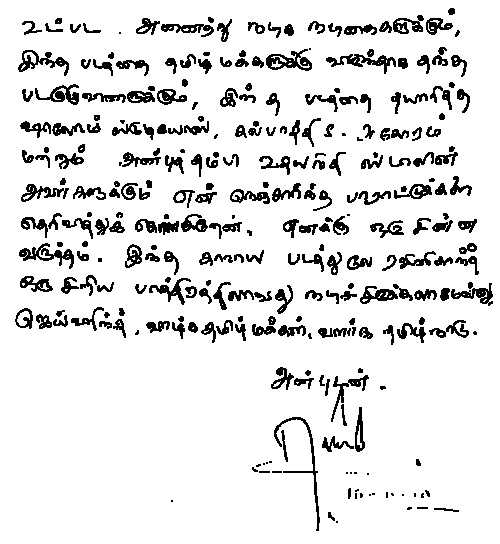 உட்பட. அனைத்து நடிக நடிகைகளுக்கும்,
இந்த படத்தை தமிழ் மக்களுக்கு வழங்க தந்த
படகுழுவினருக்கும், இந்த படத்தை தயாரித்த
ஷாலோம் ஸ்டுடியோஸ், கல்பாத்தி S. அகோரம்
மற்றும் அன்புத்தம்பி உதயநிதி ஸ்டாலின்
அவர்களுக்கும் என் நெஞ்சார்ந்த பாராட்டுக்களை
தெரிவித்துக் கொள்கிறேன். எனக்கு ஒரு சின்ன
வருத்தம். இந்த காவிய படத்துலே ரஜினிகாந்த்
ஒரு சிறிய பாத்திரத்திலாவது நடிச்சிருக்கலாமேன்னு,
ஜெய்ஹிந்த், வாழ்க தமிழ் மக்கள், வளர்க தமிழ்நாடு.
அன்புடன்.